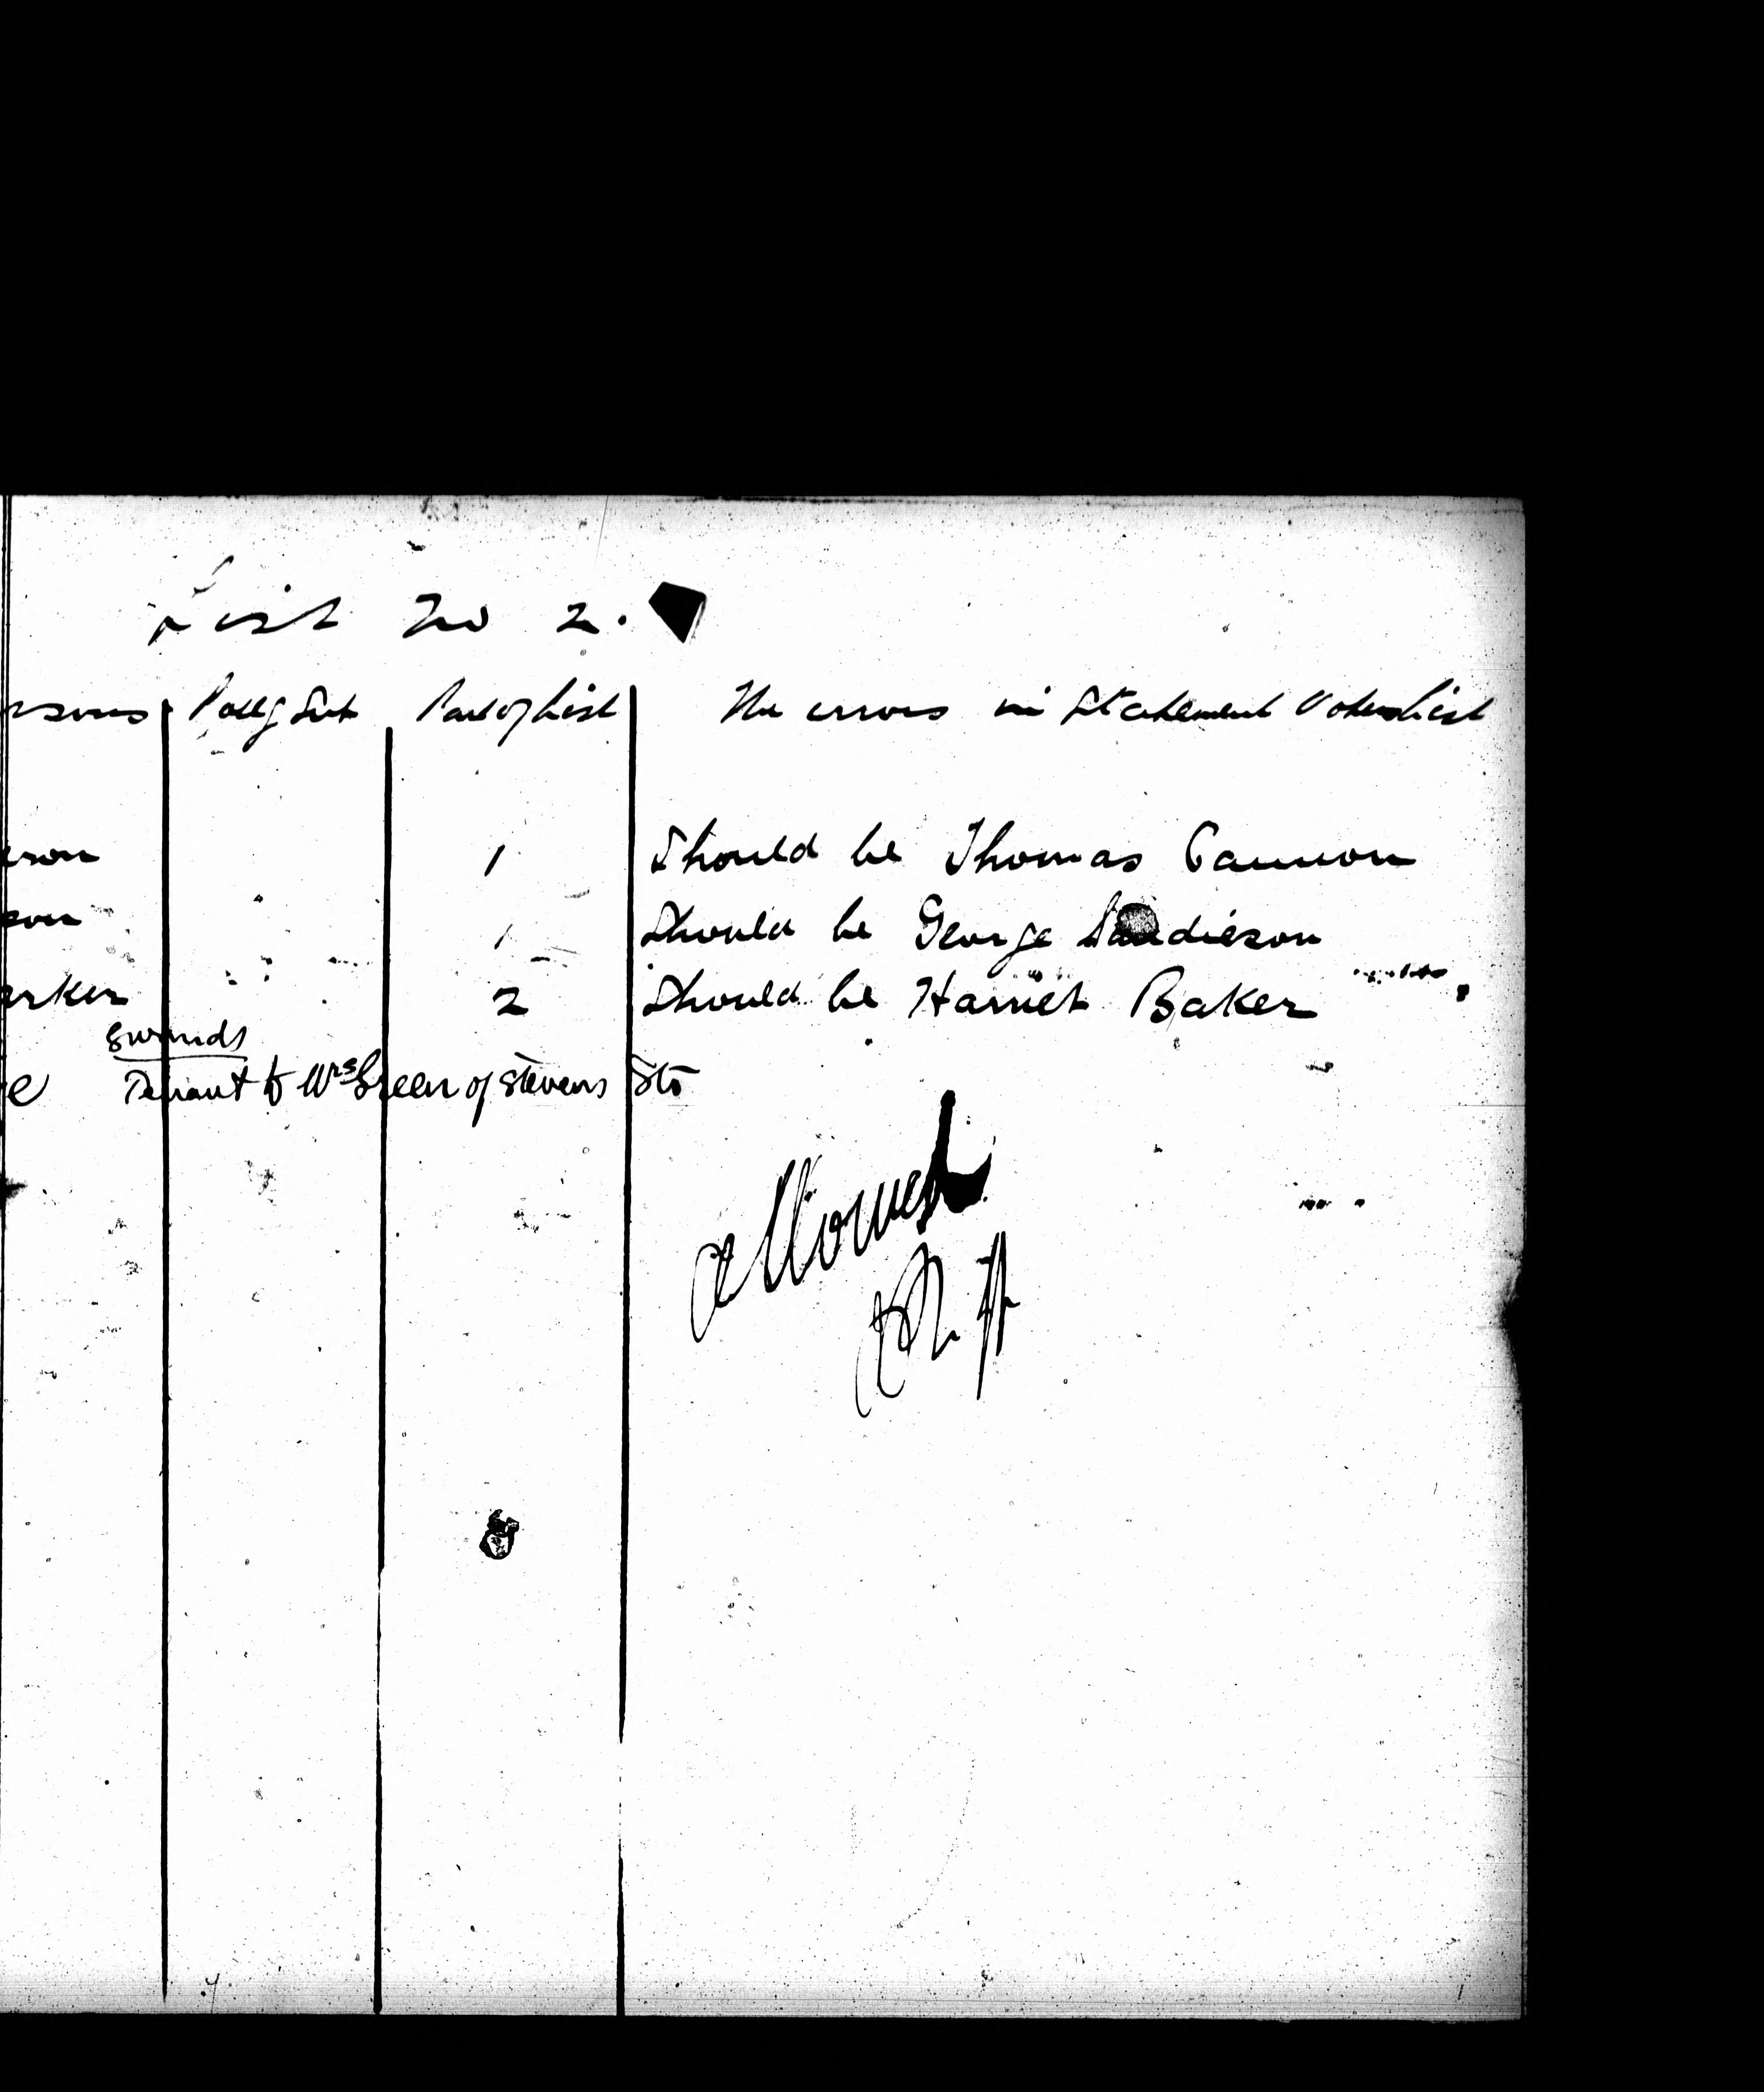 List No 2.
rsons Pollg Sub Part of List The errors in Statement Voters List
erson 1 Should be Thomas Cannon
son 1 Should be George Sandieson
arker 2 Should be Harriet Baker
grounds
e Tenant to Mrs Green of Stevens
allowed